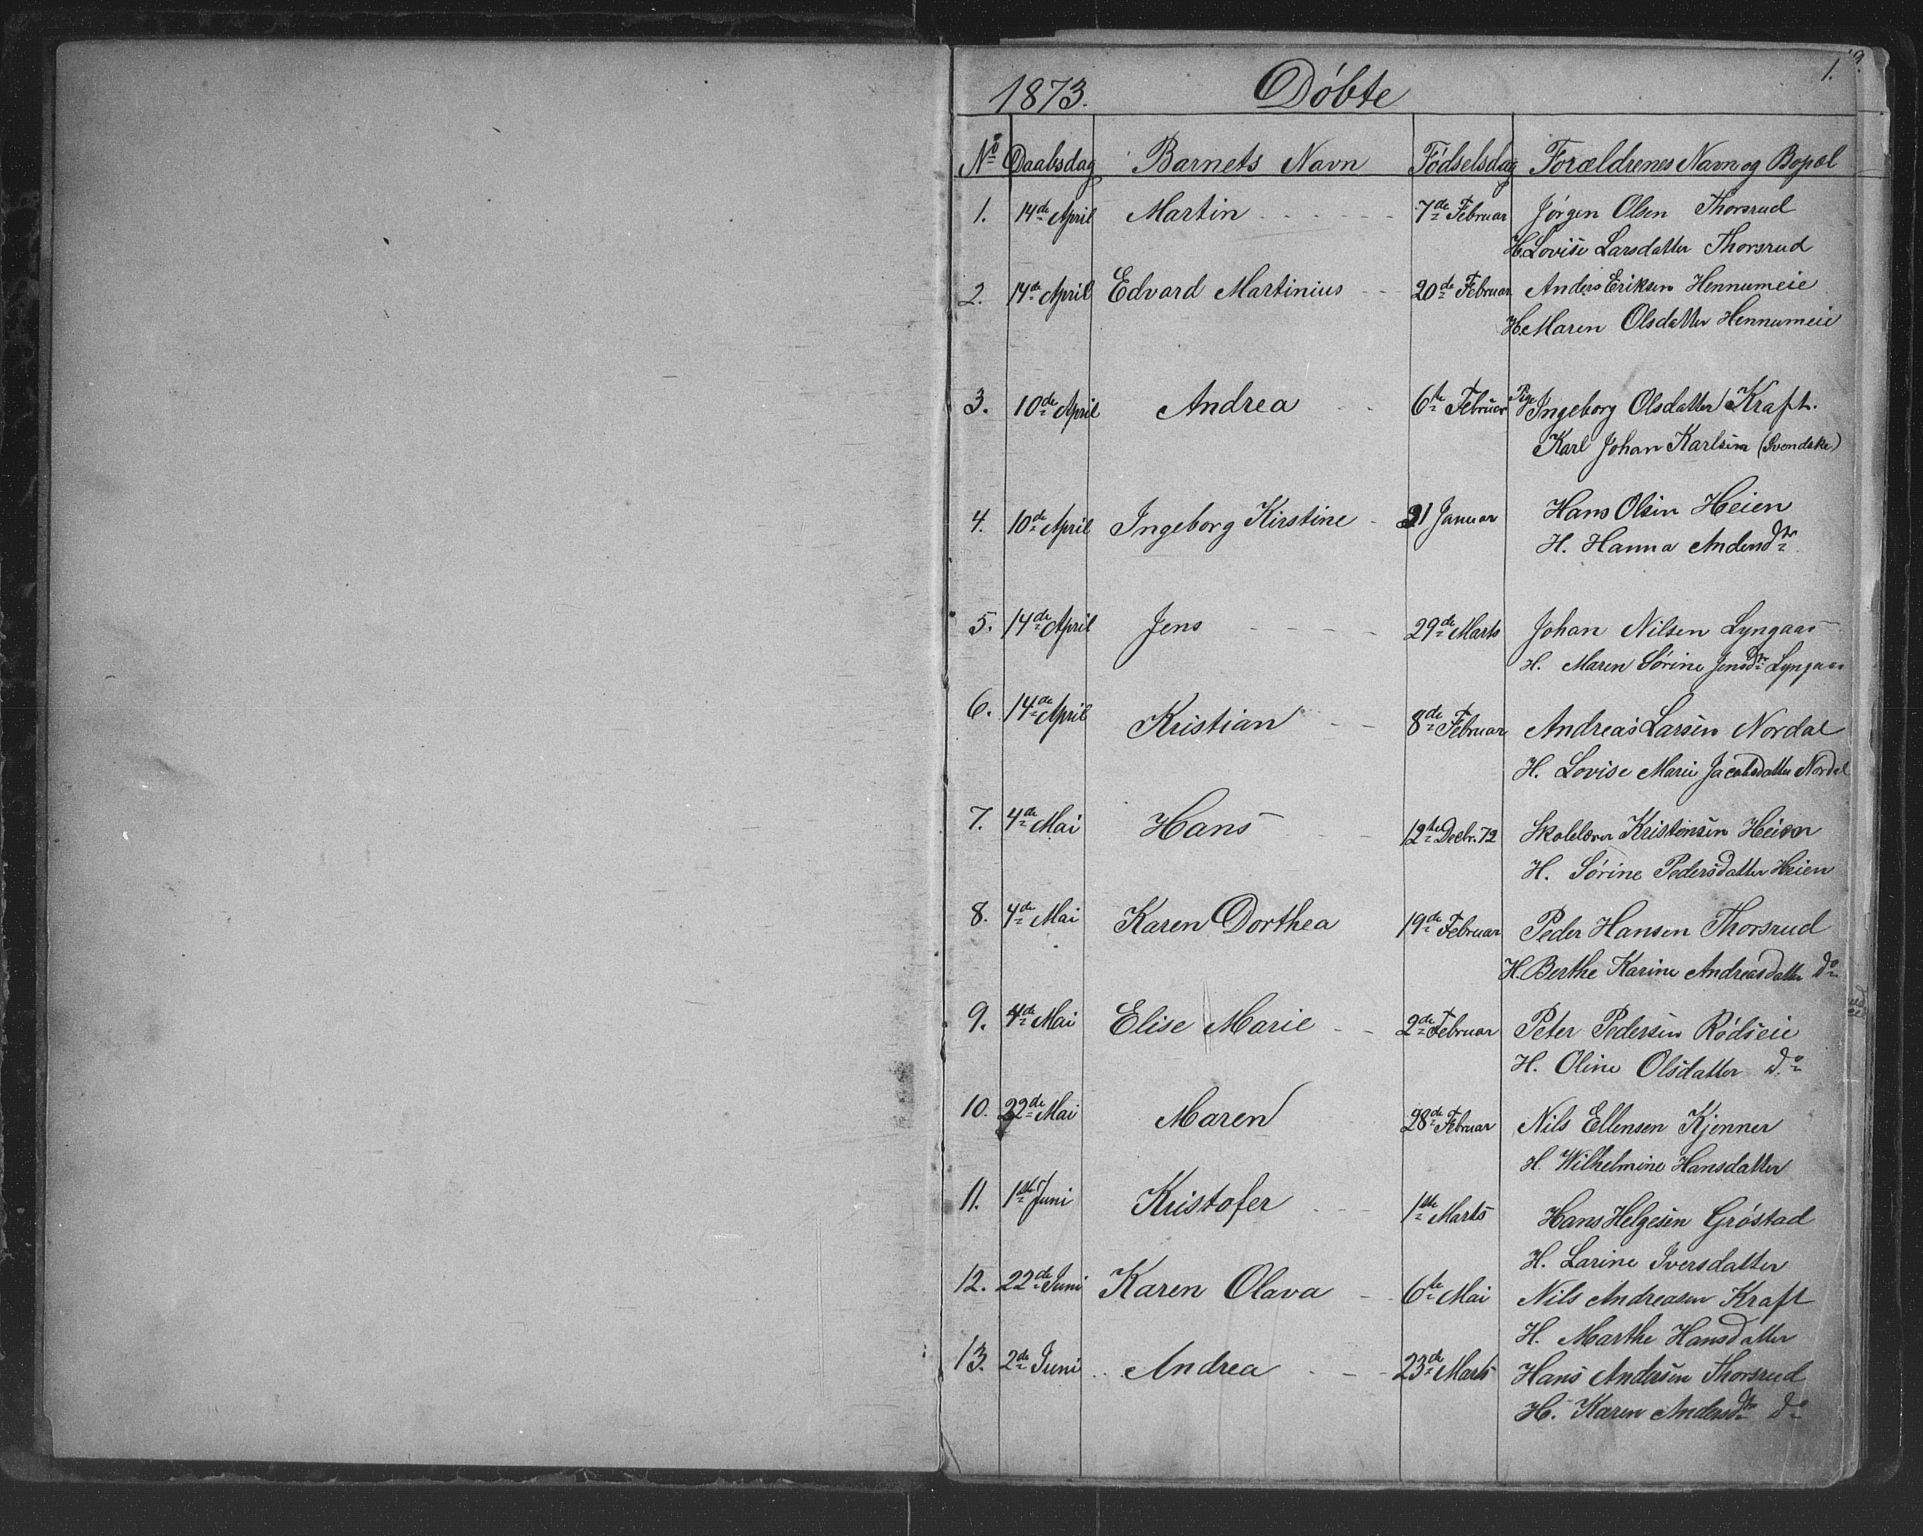 1873. Døbte 1.
No Daabsdag Barnets Navn Fødselsdag Forældrenes Navn og Bopæl
1. 14de April Martin 7de Februar Jørgen Olsen Thorsrud
H. Lovise Larsdatter Thorsrud
2. 14de April Edvard Martinius 20de Februar Anders Eriksen Hennumeie
H. Maren Olsdatter Hennumeie
3. 10de April Andrea 6te Februar Pige Ingeborg Olsdatter Kraft.
Karl Johan Karlsen (Svendske)
4. 10de April Ingeborg Kirstine 21 Januar Hans Olsen Heien
H. Hanna Andersdtr
5. 14de April Jens 29de Marts Johan Nilsen Lyngaas
H. Maren Sørine Jensdtr Lyngaas
6. 14de April Kristian 8de Februar Andreas Larsen Nordal
H. Lovise Marie Jacobsdatter Nordal
7. 4de Mai Hans 12te Decbr. 72 Skolelærer Kristensen Heien
H. Sørine Pedersdatter Heien
8. 4de Mai Karen Dorthea 19de Februar Peder Hansen Thorsrud
H. Berthe Karine Andreasdatter do
9. 4de Mai Elise Marie 2de Februar Peter Pedersen Rødseie
H. Oline Olsdatter do
10. 22de Mai Maren 28de Februar Nils Ellensen Kjenner
H. Wilhelmine Hansdatter
11. 1ste Juni Kristofer 1ste Marts Hans Helgesen Grøstad
H. Larine Iversdatter
12. 22de Juni Karen Olava 6te Mai Nils Andreasen Kraft
H. Marthe Hansdatter
13. 2de Juni Andrea 23de Marts Hans Andersen Thorsrud
H. Karen Andersdtr do